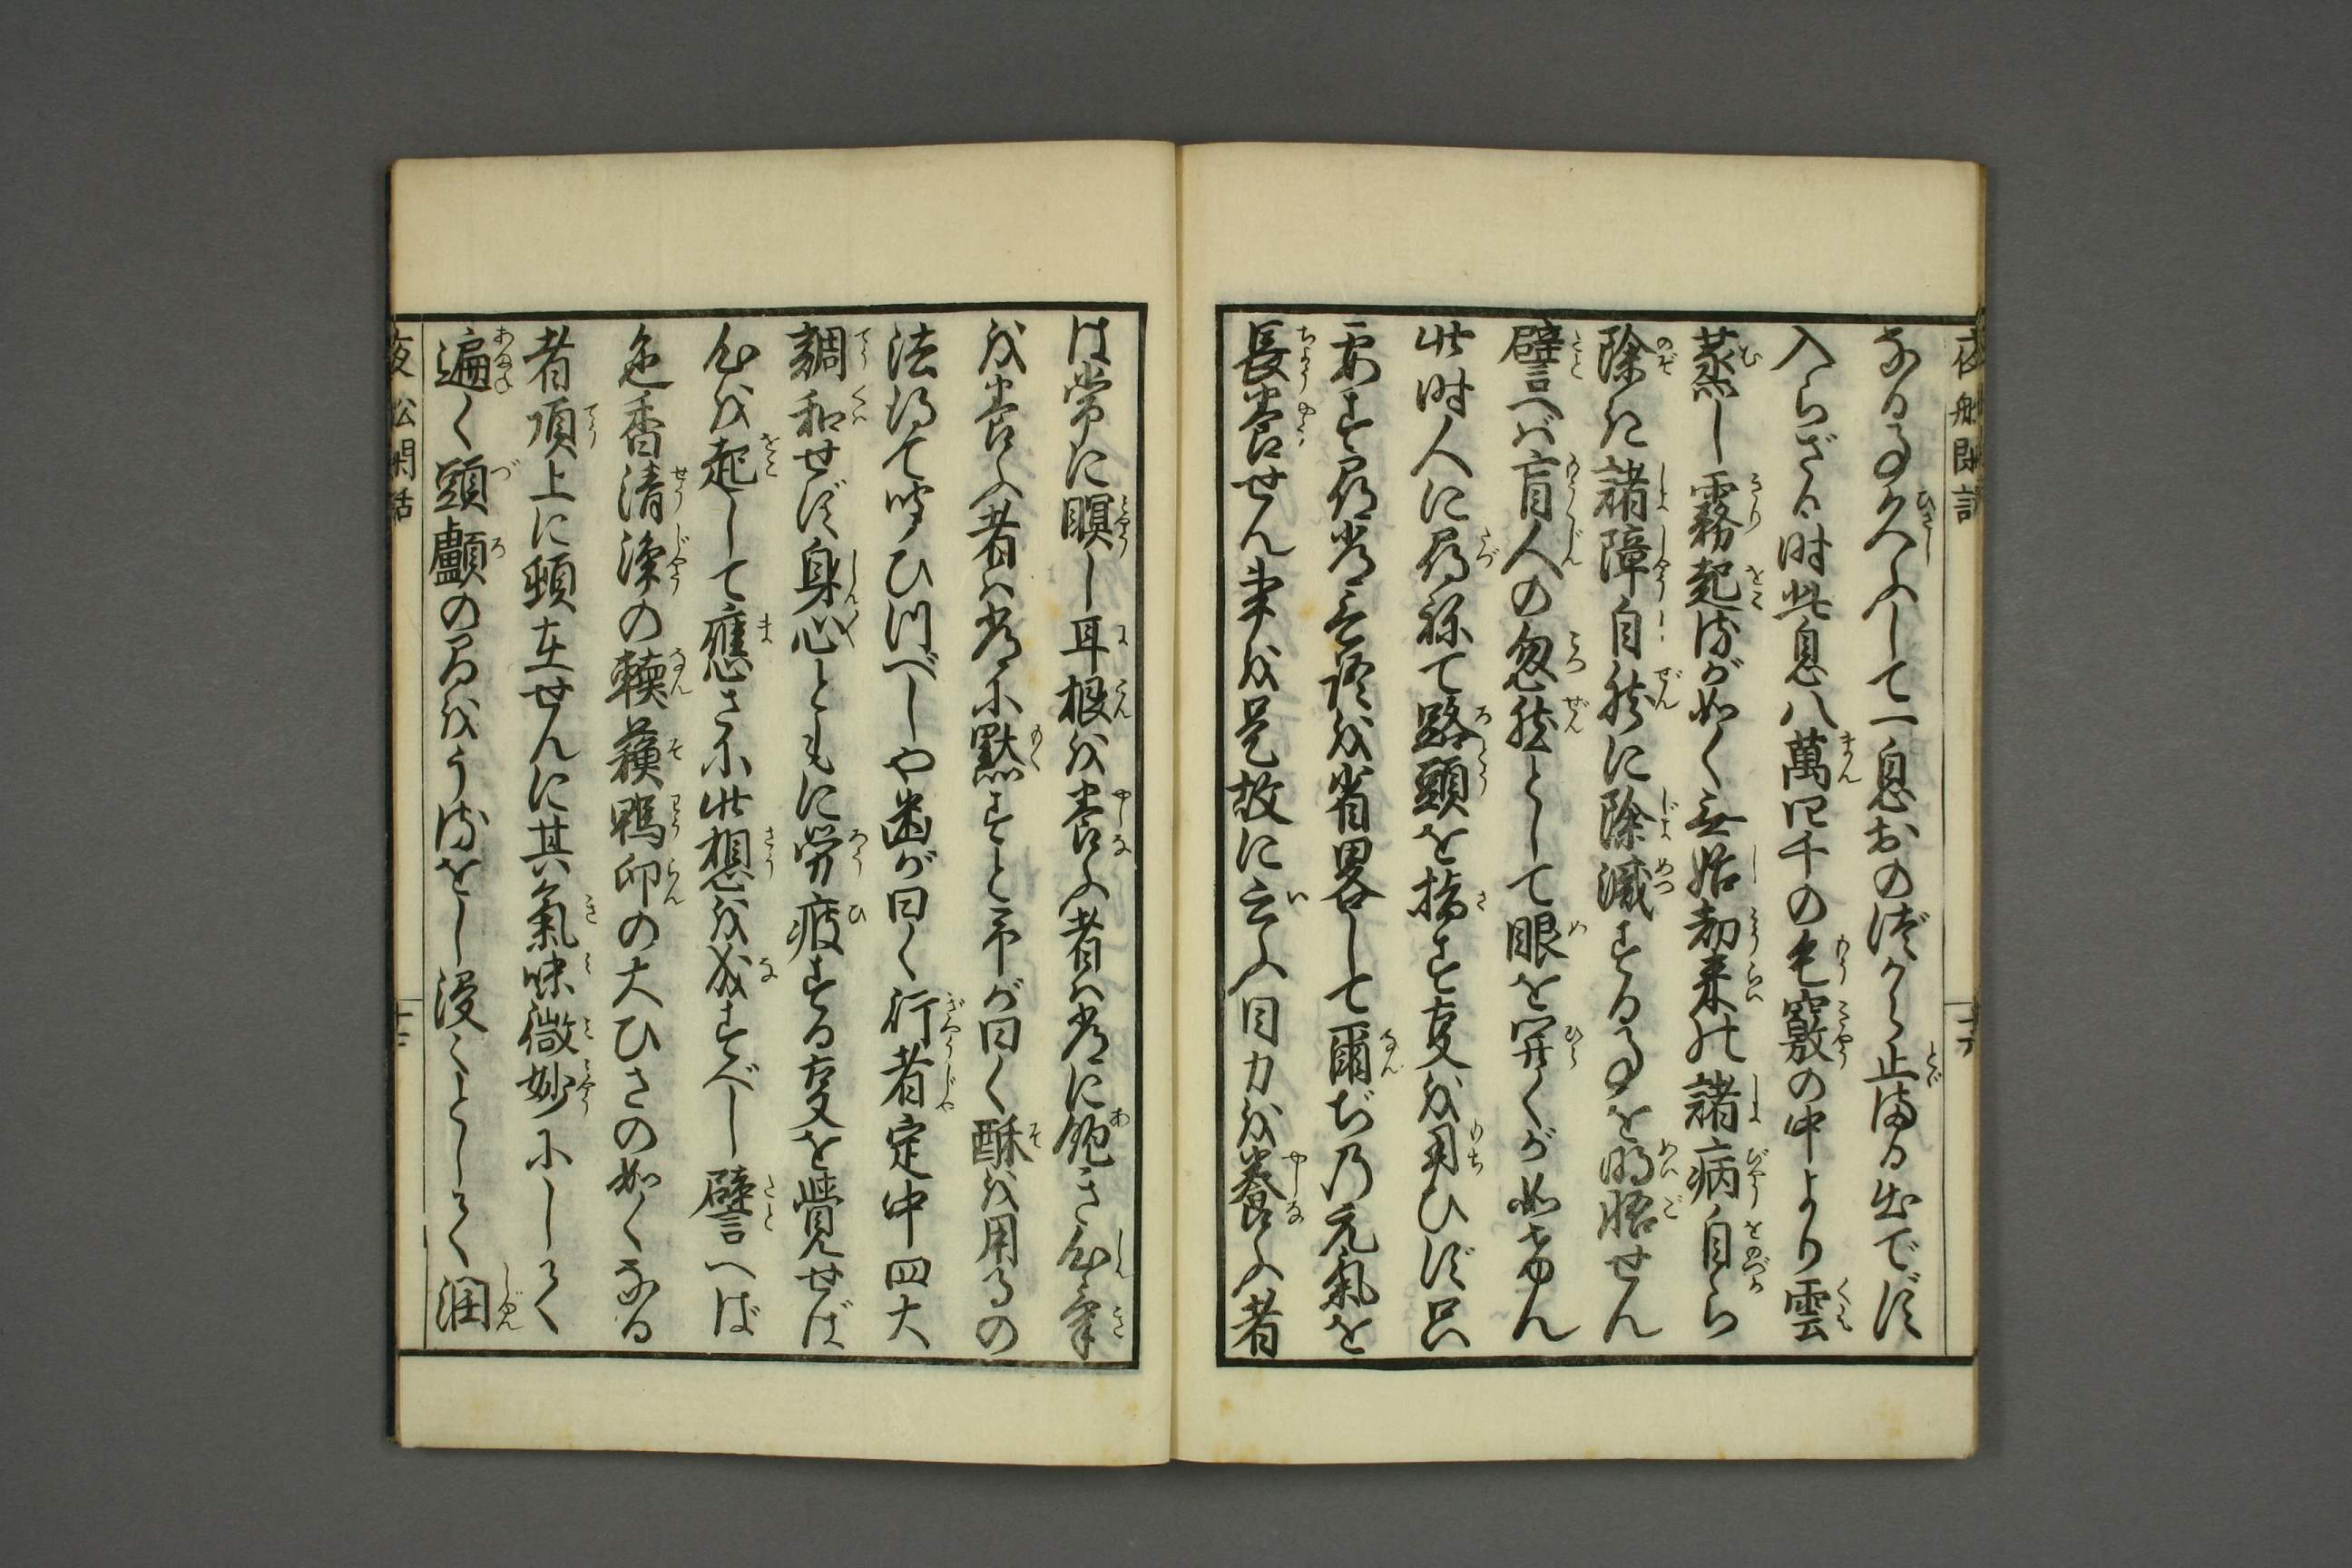 夜船閑話
なる事久ふして一息おのづから止まる出でず
入らざる時此息八萬四千の毛竅の中より雲
蒸し霧起るが如く無始劫来の諸病自ら
除き諸障自然に除滅する事を明悟せん
譬へば盲人の忽然として眼を開くが如けん
此时人に尋ねて路頭を指す事を用ひず只
要す尋常言語を省畧して爾ぢの元氣を
長養せん事を是故に云ふ目力を養ふ者
は常に瞑し耳根を養ふ者は常に飽き心氣
を養ふ者は常に黙すと予が曰く酥を用るの
法得て聞ひつべしや幽が曰く行者定中四大
調和せず身心ともに労疲する事を覺せば
心を起して應さに此想を成すべし譬へば
色香清浄の輭蘓鴨卵の大ひさの如くなる
者頂上に頓在せんに其氣味微妙にして
遍く頭顱の間をうるをし浸々として潤
夜船閑話